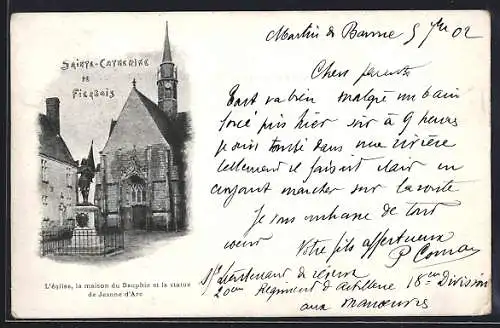 Sainte-Catherine
de
Fierbois
L'église, la maison du Dauphin et la statue
de Jeanne d'Arc
5 7bre 02
Chers parents
Tout va bien malgré un bain
forcé pris hier soir à 9 heures
je suis tombé dans une rivière
tellement il faisait clair en
croyant marcher sur la route
Je vous embrasse de tout
coeur
Votre fils affectueux
S/s Lieutenant de réserve
20em Regiment d'Artillerie 18em Division
aux manoeuvres